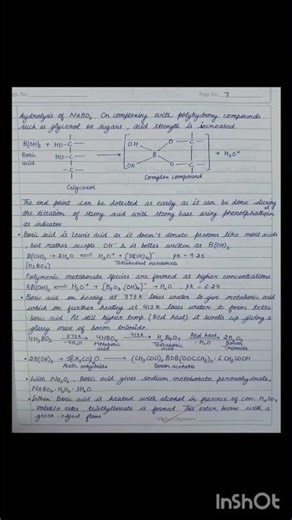 Page No. 7
hydrolysis of NaBO₂. On complexing with polyhydroxy compounds
such as glycerol or sugars acid strength is increased
B(OH)₃ + HO-C- HO-C- → [OH OH B O-C- O-C-] + H₃O⁺
Boric acid
Glycerol
Complex compound
The end point can be detected as easily as it can be done during
the titration of strong acid with strong base using phenolphthalein
as indicator
• Boric acid is Lewis acid as it doesn't donate protons like most acids
but rather accepts OH⁻ & is better written as B(OH)₃
B(OH)₃ + 2H₂O ⇌ H₃O⁺ + [B(OH)₄]⁻ pK = 9.25
(H₃BO₃) Tetrahedral metaborate
Polymeric metaborate species are formed at higher concentrations
3B(OH)₃ ⇌ H₃O⁺ + [B₃O₃(OH)₄]⁻ + H₂O pK = 6.84
• Boric acid on heating at 373K loses water to give metaboric acid
which on further heating at 413K loses water to form tetra
boric acid. At still higher temp (Red heat) it swells up giving a
glassy mass of boron trioxide
4H₃BO₃ 373K -4H₂O → 4HBO₂ 413K → H₂B₄O₇ Red heat -H₂O → 2B₂O₃
Metaboric acid Tetraboric acid Boron trioxide
• 2B(OH)₃ + 5(CH₃CO)₂O → (CH₃COO)₂BOB(OOCCH₃)₂ + 6CH₃COOH
Acetic anhydride Boron acetate
• With Na₂O₂, Boric acid gives sodium metaborate peroxyhydrate,
NaBO₂·H₂O₂·3H₂O
• When Boric acid is heated with alcohol in presence of conc. H₂SO₄,
volatile ester, triethylborate is formed. This ester burns with a
green-edged flame
InShOt